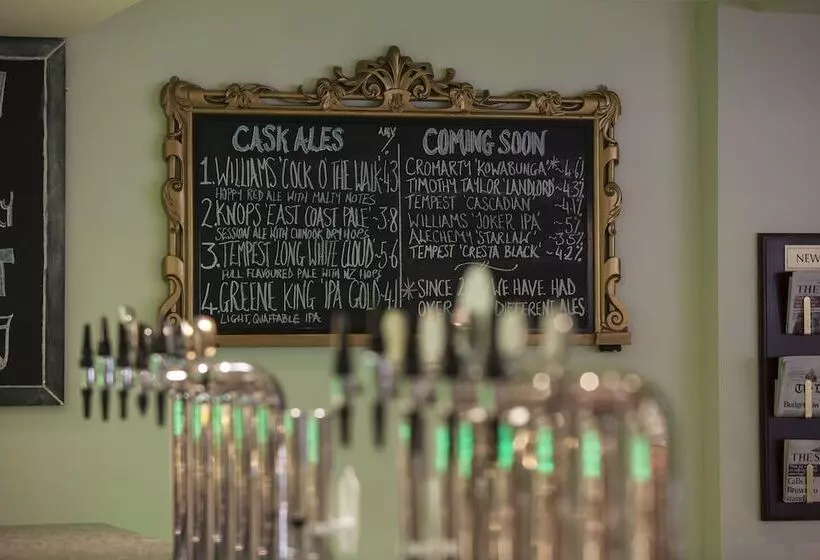 CASK ALES ABV %
1. WILLIAMS 'COCK O' THE WALK' 4.3
HOPPY RED ALE WITH MALTY NOTES
2. KNOPS EAST COAST PALE ~ 3.8
SESSION ALE WITH CHINOOK DRY HOPS
3. TEMPEST LONG WHITE CLOUD ~ 5.6
FULL FLAVOURED PALE WITH NZ HOPS
4. GREENE KING 'IPA GOLD' 4.1
LIGHT, QUAFFABLE IPA
COMING SOON
CROMARTY 'KOWABUNGA'
TIMOTHY TAYLOR 'LANDLORD'
TEMPEST 'CASCADIAN'
WILLIAMS 'JOKER IPA' ~ 5%
ALECHEMY 'STARLAW'
TEMPEST 'CRESTA BLACK' ~ 4.2%
* SINCE WE HAVE HAD
OVER DIFFERENT ALES
NEW
THE
Budge
THE S
Calls
Stand